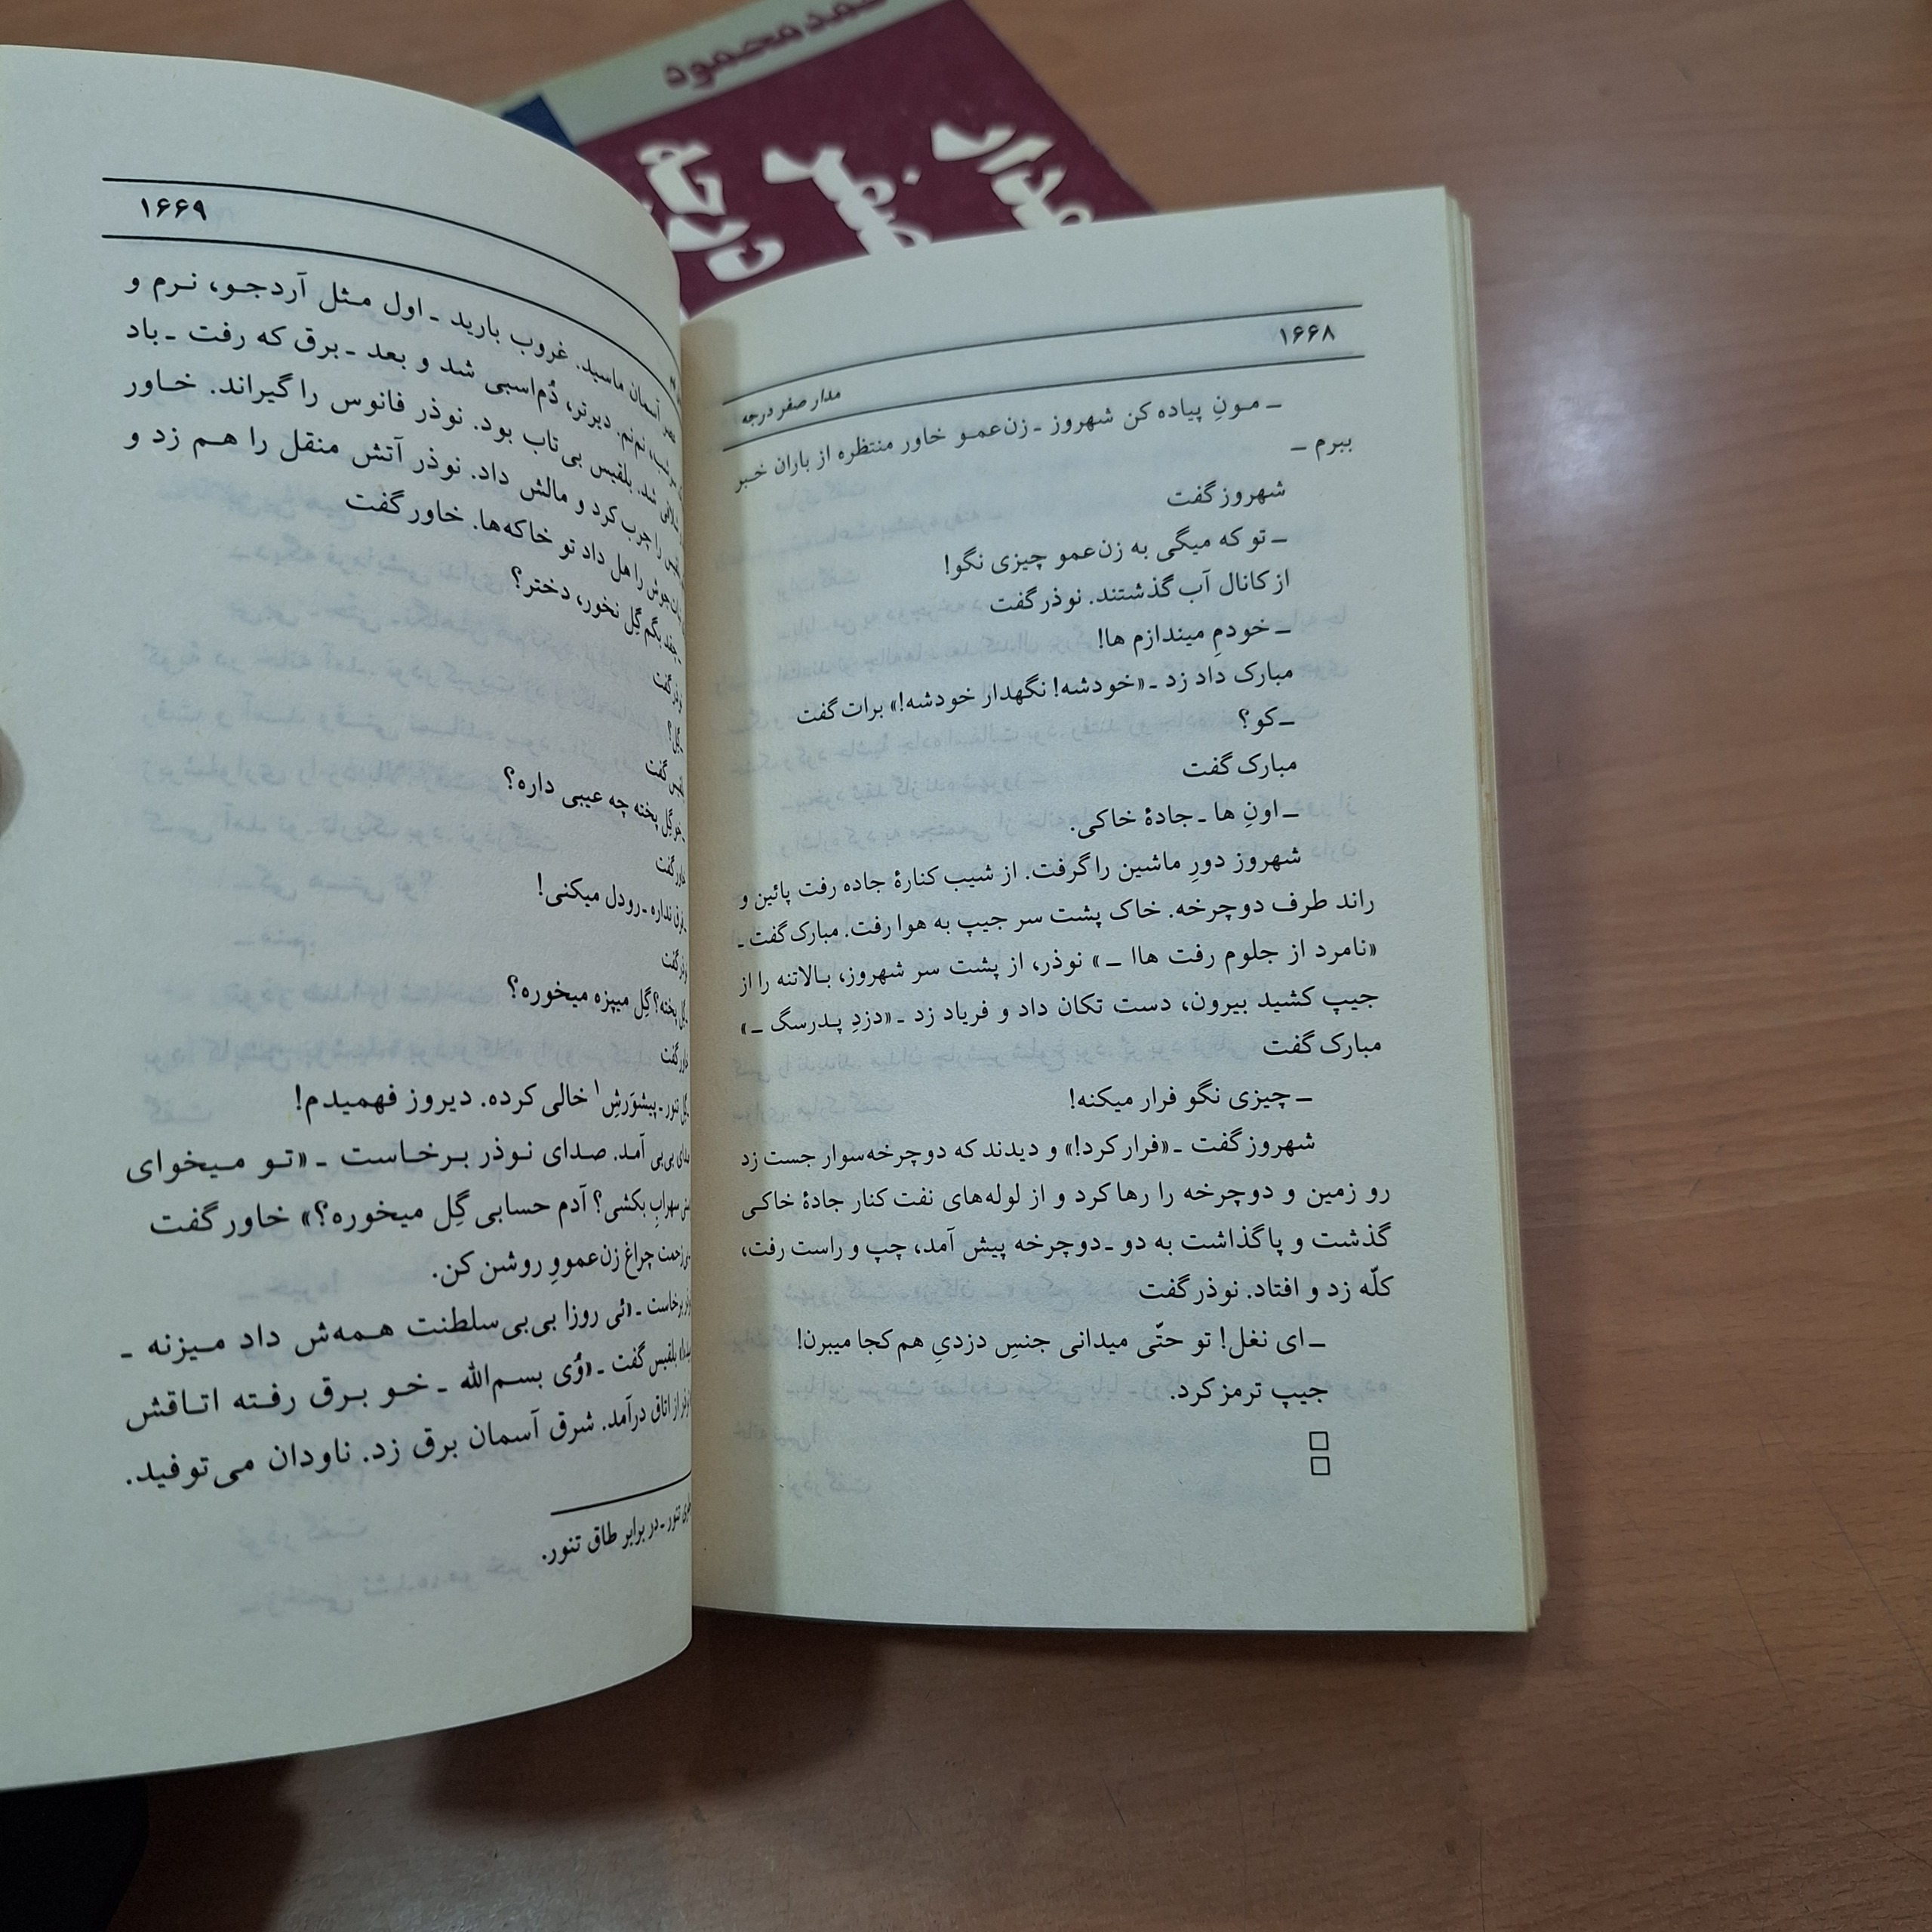 محمود
مدار
صفر
درجه
۱۶۶۸
مدار صفر درجه
ـ مـونِ پیاده کن شهروز ـ زن‌عمـو خاور منتظره از باران خبر
ببرم ـ
شهروز گفت
ـ تو که میگی به زن‌عمو چیزی نگو!
از کانال آب گذشتند. نوذر گفت
ـ خودمِ میندازم ها!
مبارک داد زد ـ «خودشه! نگهدار خودشه!» برات گفت
ـ کو؟
مبارک گفت
ـ اونِ ها ـ جادهٔ خاکی.
شهروز دورِ ماشین را گرفت. از شیب کنارهٔ جاده رفت پائین و
راند طرف دوچرخه. خاک پشت سر جیپ به هوا رفت. مبارک گفت ـ
«نامرد از جلوم رفت هاا ـ» نوذر، از پشت سر شهروز، بـالاتنه را از
جیپ کشید بیرون، دست تکان داد و فریاد زد ـ «دزدِ پـدرسگ ـ»
مبارک گفت
ـ چیزی نگو فرار میکنه!
شهروز گفت ـ «فرار کرد!» و دیدند که دوچرخه‌سوار جست زد
رو زمین و دوچرخه را رها کرد و از لوله‌های نفت کنار جادهٔ خاکـی
گذشت و پا گذاشت به دو ـ دوچرخه پیش آمد، چپ و راست رفت،
کلّه زد و افتاد. نوذر گفت
ـ ای نغل! تو حتّی میدانی جنسِ دزدیِ هم کجا میبرن!
جیپ ترمز کرد.
۱۶۶۹
عصر آسمان ماسید. غروب بارید ـ اول مـثل آردجـو، نـرم و
نم‌نم. دیرتر، دُم‌اسبی شد و بعد ـ برق که رفت ـ باد
شد. بلقیس بی‌تاب بود. نوذر فانوس را گیراند. خـاور
را چرب کرد و مالش داد. نوذر آتش منقل را هـم زد و
را هل داد تو خاکه‌ها. خاور گفت
چند بگم گِل نخور، دختر؟
نوذر گفت
گِل؟
گفت
خو گِل پخته چه عیبی داره؟
خاور گفت
فرق نداره ـ رودل میکنی!
نوذر گفت
گِل پخته؟ گِل میپزه میخوره؟
خاور گفت
گِل تنور ـ پیشوَرشِ۱ خالی کرده. دیروز فهمیدم!
صدای بی‌بی آمد. صـدای نـوذر بـرخـاست ـ «تـو مـیخوای
سهرابِ بکشی؟ آدم حسابی گِل میخوره؟» خاور گفت
زحمت چراغ زن‌عموو روشن کن.
برخاست ـ «ئی روزا بی‌بی‌سلطنت هـمه‌ش داد مـیزنه ـ
بلقیس گفت ـ «وُی بسـم‌الله ـ خـو بـرق رفـته اتـاقش
از اتاق درآمد. شرق آسمان برق زد. ناودان می‌توفید.
تنور ـ در برابر طاق تنور.